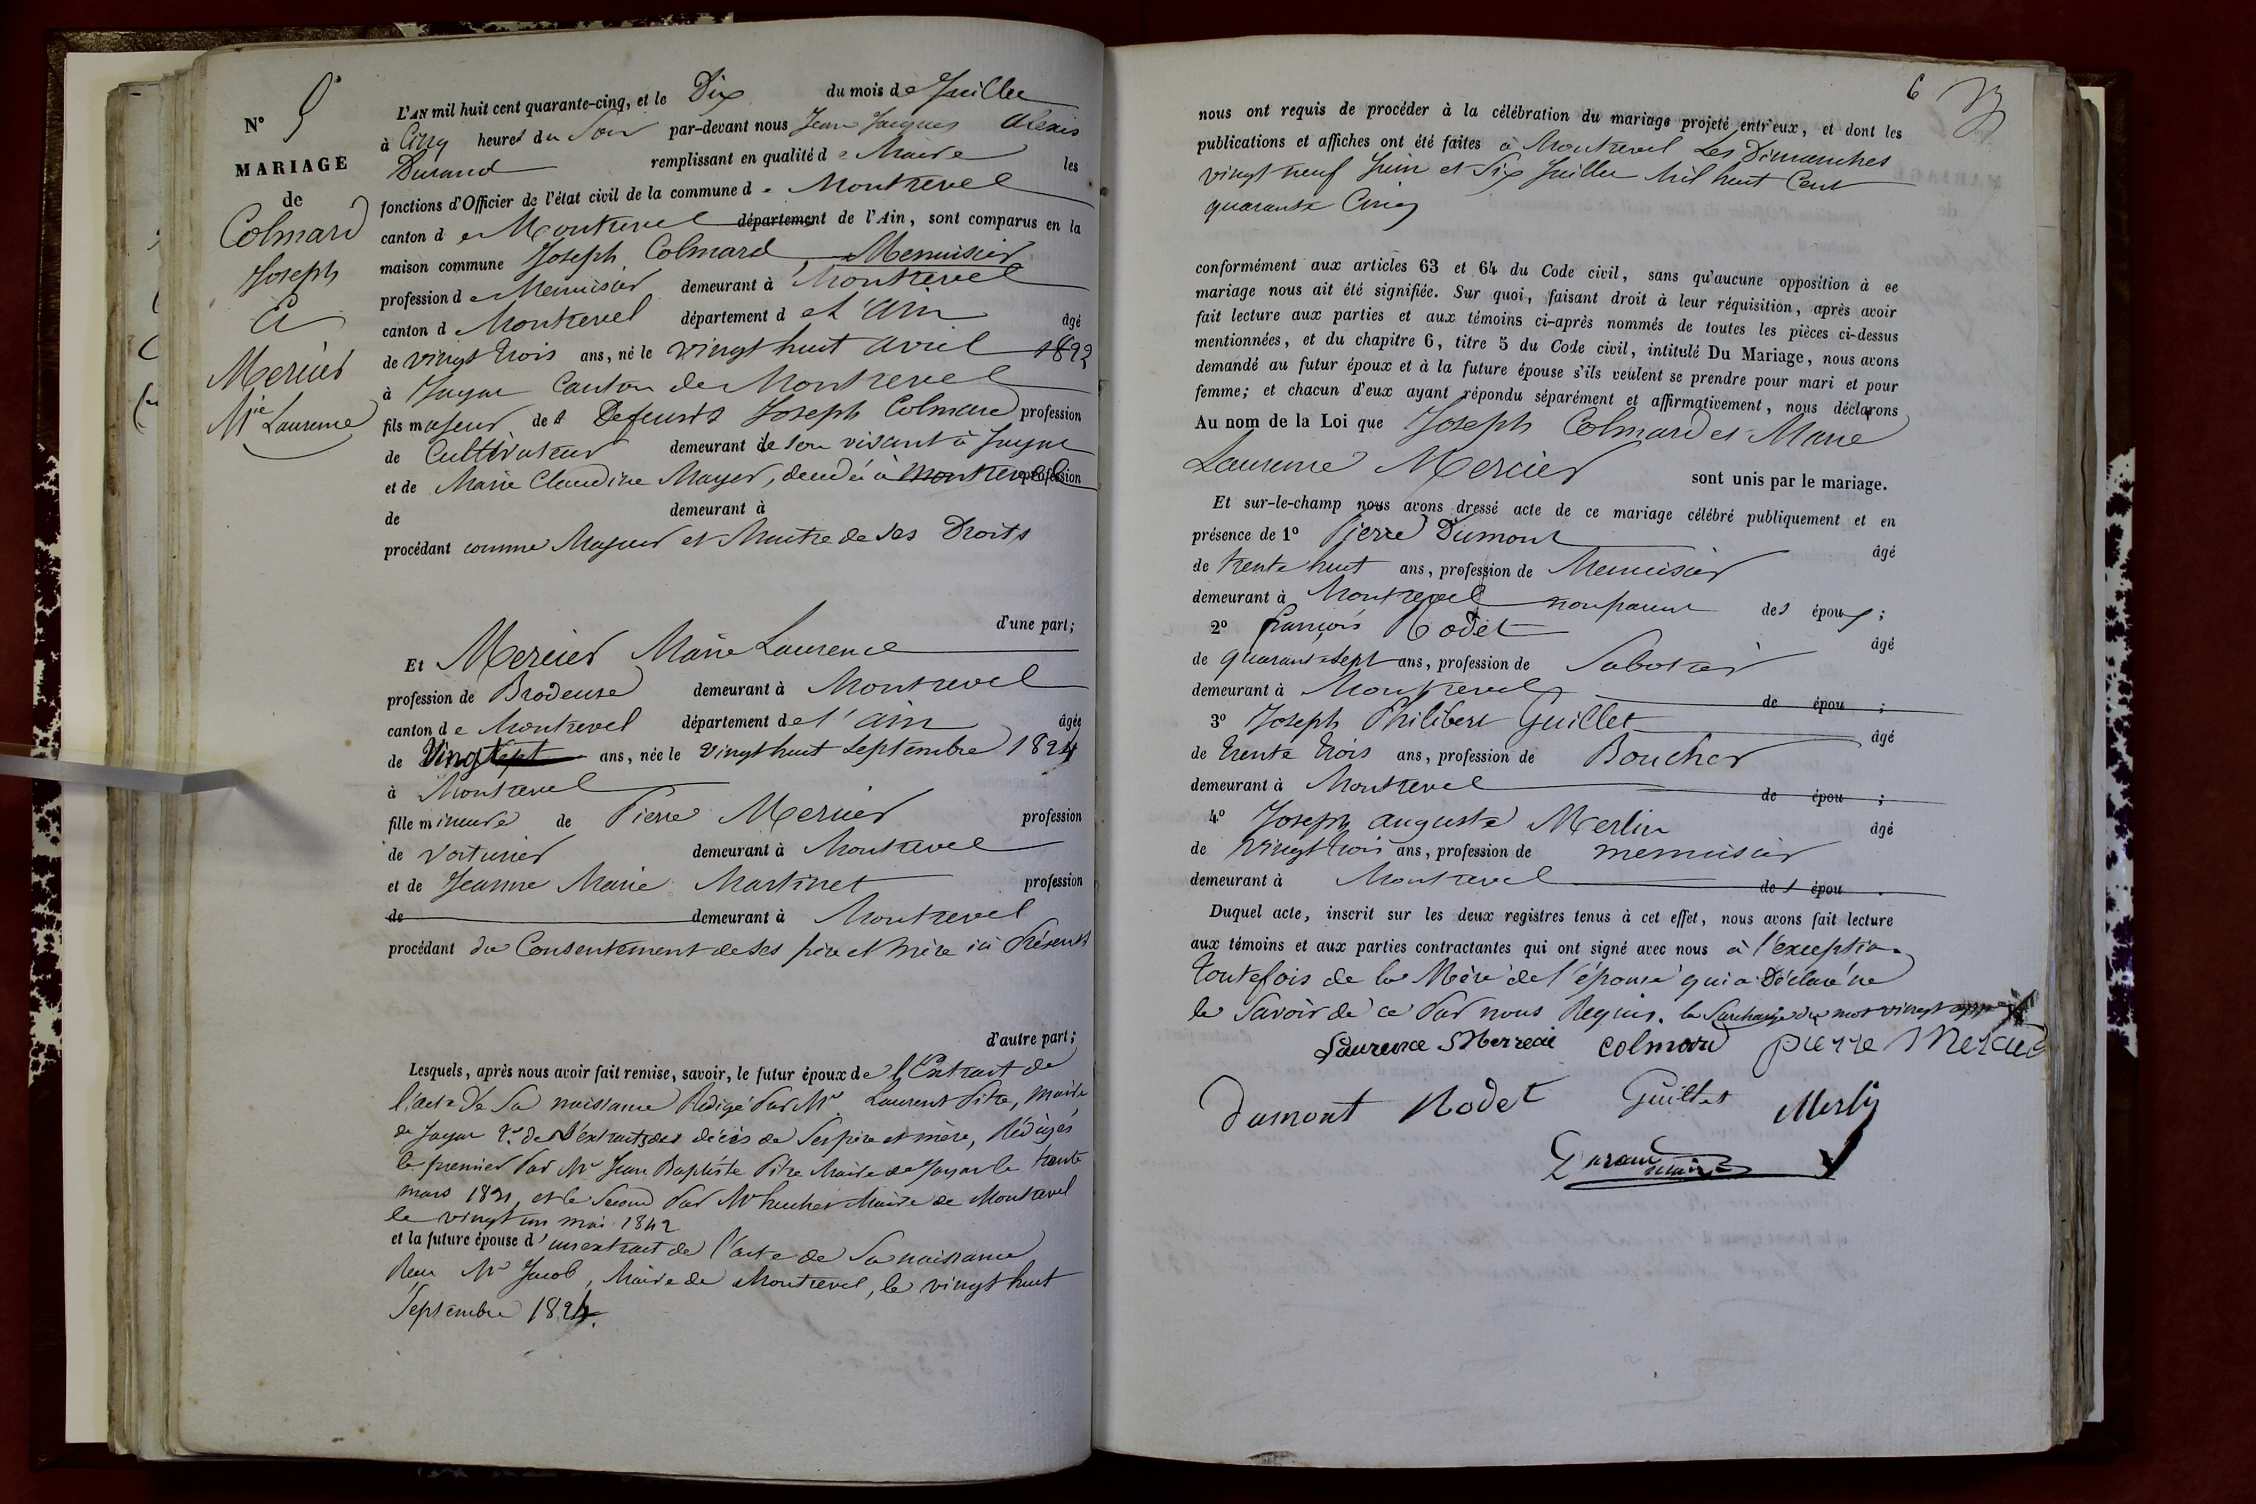 N° 5
MARIAGE
de
Colmard
Joseph
Et
Mercier
Mie Laurence
L'AN mil huit cent quarante-cinq, et le Dix du mois de Juillet
à Cinq heures du Soir par-devant nous Jean Jacques Alexis
Durand remplissant en qualité de Maire les
fonctions d'Officier de l'état civil de la commune de Montrevel
canton de Montrevel département de l'Ain, sont comparus en la
maison commune Joseph Colmard, Menuisier
profession de Menuisier demeurant à Montrevel
canton d Montrevel département de l'Ain âgé
de vingt trois ans, né le vingt huit avril 1822
à Jayat Canton de Montrevel
fils majeur de s Defunts Joseph Colmard profession
de Cultivateur demeurant de son vivant à Jayat
et de Marie Claudine Mayer, décédée à Montrevel profession
de demeurant à
procédant comme Majeur et Maitre de ses Droits
d'une part;
Et Mercier Marie Laurence
profession de Brodeuse demeurant à Montrevel
canton de Montrevel département de l'ain âgée
de Vingt ans, née le vingt huit septembre 1824
à Montrevel
fille mineure de Pierre Mercier profession
de voiturier demeurant à Montrevel
et de Jeanne Marie Martinet profession
de demeurant à Montrevel
procédant du Consentement de ses père et mère ici Présents
d'autre part;
Lesquels, après nous avoir fait remise, savoir, le futur époux de l'Extrait de
l'acte de Sa naissance Rédigé Par Mr Laurent Pitre, maire
de Jayat 2° de l'extraits des décès de Ses père et mère, Rédigés
le premier Par Mr Jean Baptiste Pitre Maire de Jayat le trente
mars 1831, et le Second Par Mr Maire de Montrevel
le vingt un mai 1842
et la future épouse d'un extrait de l'acte de Sa naissance
Reçu Mr Jacob, Maire de Montrevel, le vingt huit
Septembre 1824.
6
nous ont requis de procéder à la célébration du mariage projeté entr'eux, et dont les
publications et affiches ont été faites à Montrevel Les Dimanches
vingt neuf Juin et Six Juillet Mil huit Cent
quarante Cinq
conformément aux articles 63 et 64 du Code civil, sans qu'aucune opposition à ce
mariage nous ait été signifiée. Sur quoi, faisant droit à leur réquisition, après avoir
fait lecture aux parties et aux témoins ci-après nommés de toutes les pièces ci-dessus
mentionnées, et du chapitre 6, titre 5 du Code civil, intitulé Du Mariage, nous avons
demandé au futur époux et à la future épouse s'ils veulent se prendre pour mari et pour
femme; et chacun d'eux ayant répondu séparément et affirmativement, nous déclarons
Au nom de la Loi que Joseph Colmard et Marie
Laurence Mercier sont unis par le mariage.
Et sur-le-champ nous avons dressé acte de ce mariage célébré publiquement et en
présence de 1° Pierre Dumont âgé
de trente huit ans, profession de Menuisier
demeurant à Montrevel non parent des époux;
2° françois Rodet âgé
de quarante sept ans, profession de Sabotier
demeurant à Montrevel de épou ;
3° Joseph Philibert Guillet âgé
de trente trois ans, profession de Boucher
demeurant à Montrevel de épou ;
4° Joseph auguste Merlin âgé
de vingt trois ans, profession de menuisier
demeurant à Montrevel des épou .
Duquel acte, inscrit sur les deux registres tenus à cet effet, nous avons fait lecture
aux témoins et aux parties contractantes qui ont signé avec nous à l'exception
toutefois de la Mère de l'épouse qui a Déclaré ne
le Savoir de ce Par nous Requis. la Surcharge du mot vingt
Laurence Merrcie colmard pierre Mercier
Dumont Rodet Guillet Merlin
Durand
maire